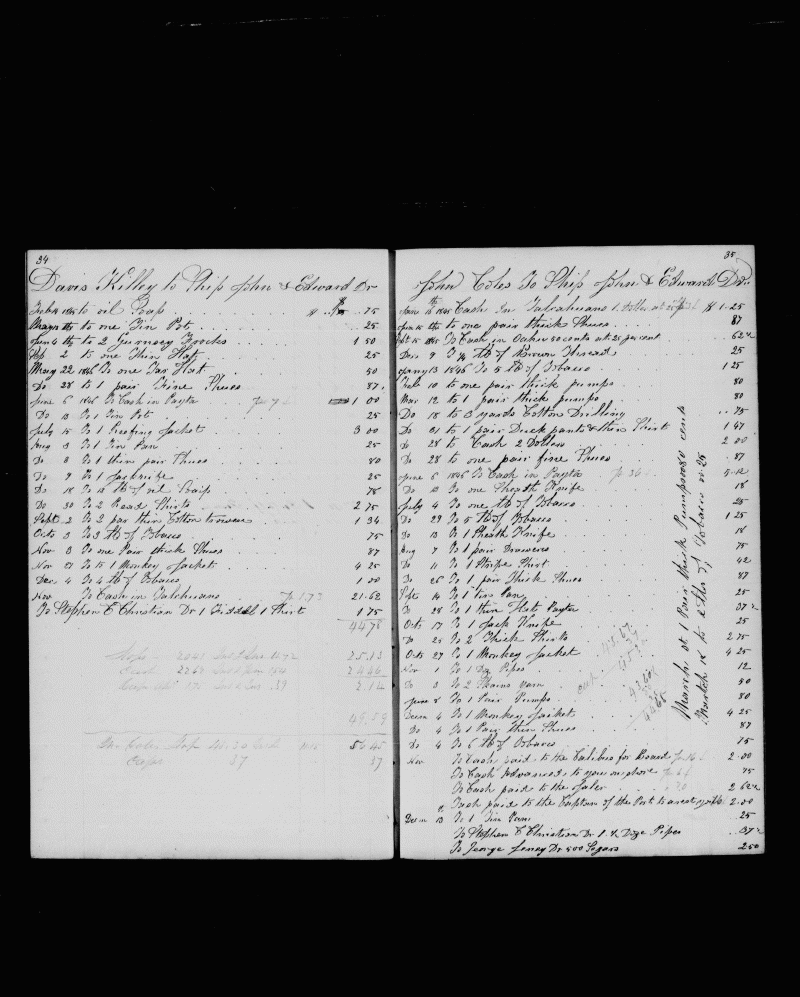 34
Davis Killey to Ship John & Edward Dr
Feb 14 1845 to oil Soap 75
to one Tin Pot 25
June 4 to 2 Gurnsey Frocks 1 50
2 to one Thin Hat 25
May 22 1846 To one Tar Hat 50
Do 28 to 1 pair Fine Shoes 87
June 6 1846 To Cash in Payta 1 00
Do 13 To 1 Tin Pot 25
July 15 To 1 Reefing Jacket 3 00
Aug 3 To 1 Tin Pan 25
Do 8 To 1 thin pair Shoes 80
Do 9 To 1 Jacknife 25
Do 18 To lb of oil Soap 78
Do 30 To 2 Read Shirts 2 75
Sept 2 To 2 par thin Cotton trowsers 1 34
Octo 3 To 3 lb of Tobacco 75
Nov 3 To one Pair thick Shoes 87
Nov 27 To 1 Monkey Jacket 4 25
Dec 4 To 4 lb of Tobacco 1 00
Nov To Cash in Talchuano 21-62
To Stephen C Christian Dr 1 Fiddel 1 Shirt 1 75
44 78
25.13
24 46
2.14
49.59
56 45
37 37
35
John Coles To Ship John & Edward Dr
June 1845 Cash In Talcahuano 1 Doller at 25 $ 1-25
June to one pair thick Shoes 87
15 1845 To Cash in Oahu 50 cents at 25 per cent 62
Dec 9 To ½ lb of Brown Thread 25
Jany 13 1846 To 5 lb of Tobacco 1 25
Feb 10 to one pair thick pumps 80
Mar 12 to 1 pair thick pumps 80
Do 18 to 3 yards Cotton Drilling 75
Do 21 to 1 pair Duck pants & thin Shirt 1 47
Do 28 to Cash 2 Dollers 2 00
Do 28 to one pair fine Shoes 87
June 6 1846 To Cash in Payta 5-12
Do 10 To one Sheath Knife 18
July 4 To one lb of Tobacco 25
Do 29 To 5 lb of Tobacco 1 25
Do 13 To 1 Sheath Knife 18
Aug 7 To 1 pair Drawers 75
Do 11 To 1 Stripe Shirt 42
Do 26 To 1 pair Thick Shoes 87
Septe 14 To 1 tin Pan 25
Do 28 To 1 thin Hat Payta 37
Octo 17 To 1 Jack Knife 25
Do 25 To 2 Thick Shirts 2 75
Octo 27 To 1 Monkey Jacket 4 25
Nov 1 To 1 Dz Pipes 12
Do 3 To 2 Skains yarn 50
June 8 To 1 Pair Pumps 80
Decem 4 To 1 Monkey Jacket 4 25
Do 4 To 1 Pair thin Shoes 87
Do 4 To 6 lb of Tobacco 75
Nov To Cash paid to the Calibus for Board 2-00
To Cash Advanced to you on shore 75
To Cash paid to the Jaler 2 62
Cash paid to the Captain of the Port to arrest you 2.00
Decem 13 To 1 Tin Pan 25
To Stephen C Christian Dr 1 ½ Doze Pipes 37
To George Dr 500 Segars 2 50
March at 1 Pair thick Pumps 80 cents
March 12 to 1 lb of Tobacco 25